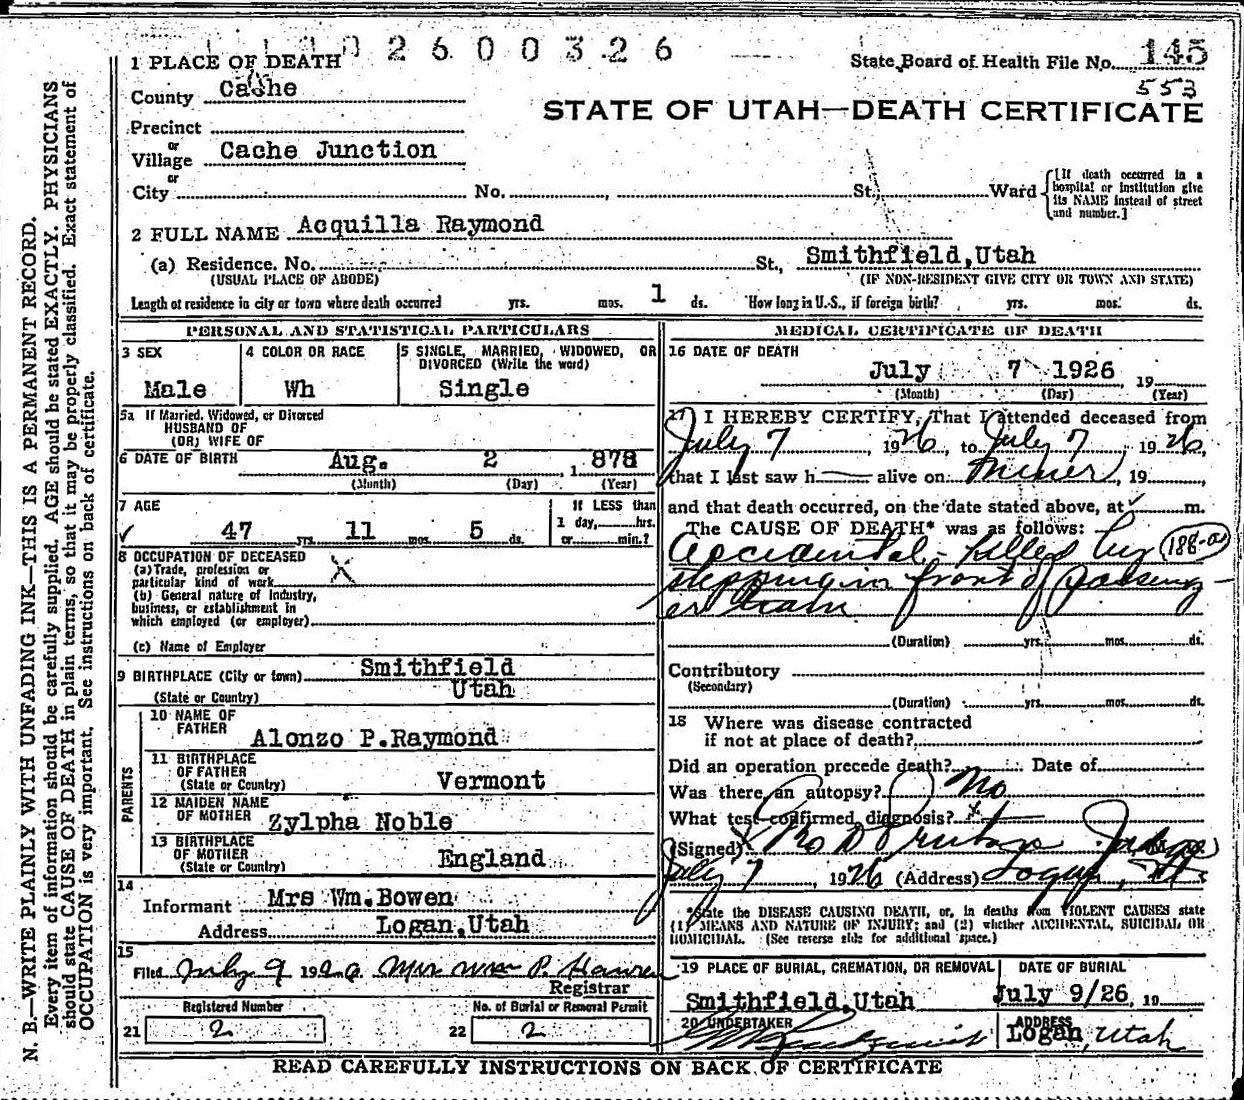 1 1 1 0 2 6 0 0 3 2 6
State Board of Health File No. 145
553
1 PLACE OF DEATH
County Cache
STATE OF UTAH—DEATH CERTIFICATE
Precinct
or
Village Cache Junction
or
City No. St. Ward
[If death occurred in a hospital or institution give its NAME instead of street and number.]
2 FULL NAME Acquilla Raymond
(a) Residence. No. St., Smithfield, Utah
(USUAL PLACE OF ABODE) (IF NON-RESIDENT GIVE CITY OR TOWN AND STATE)
Length of residence in city or town where death occurred yrs. mos. 1 ds. How long in U.S., if foreign birth? yrs. mos. ds.
PERSONAL AND STATISTICAL PARTICULARS
3 SEX
Male
4 COLOR OR RACE
Wh
5 SINGLE, MARRIED, WIDOWED, OR
DIVORCED (Write the word)
Single
5a If Married, Widowed, or Divorced
HUSBAND OF
(OR) WIFE OF
6 DATE OF BIRTH Aug. 2 1 878
(Month) (Day) (Year)
7 AGE
47 yrs. 11 mos. 5 ds.
If LESS than
1 day, hrs.
or min.?
8 OCCUPATION OF DECEASED
(a) Trade, profession or
particular kind of work X
(b) General nature of Industry,
business, or establishment in
which employed (or employer)
(c) Name of Employer
9 BIRTHPLACE (City or town) Smithfield
(State or Country) Utah
PARENTS
10 NAME OF
FATHER Alonzo P. Raymond
11 BIRTHPLACE
OF FATHER
(State or Country) Vermont
12 MAIDEN NAME
OF MOTHER Zylpha Noble
13 BIRTHPLACE
OF MOTHER
(State or Country) England
14
Informant Mrs Wm. Bowen
Address Logan, Utah
15
Filed July 9 1926 Mrs Wm P. Hansen
Registrar
Registered Number
21 2
No. of Burial or Removal Permit
22 2
MEDICAL CERTIFICATE OF DEATH
16 DATE OF DEATH
July 7 1926, 19
(Month) (Day) (Year)
17 I HEREBY CERTIFY, That I attended deceased from
July 7 1926, to July 7, 1926,
that I last saw h alive on , 19 ,
and that death occurred, on the date stated above, at m.
The CAUSE OF DEATH* was as follows:
Accidental - killed by 188-a
stepping in front of passeng-
er train
(Duration) yrs. mos. ds.
Contributory
(Secondary)
(Duration) yrs. mos. ds.
18 Where was disease contracted
if not at place of death?
Did an operation precede death? Date of
Was there an autopsy? No
What test confirmed diagnosis?
(Signed)
July 7, 1926 (Address) Logan, Ut
*State the DISEASE CAUSING DEATH, or, in deaths from VIOLENT CAUSES state
(1) MEANS AND NATURE OF INJURY; and (2) whether ACCIDENTAL, SUICIDAL OR
HOMICIDAL. (See reverse side for additional space.)
19 PLACE OF BURIAL, CREMATION, OR REMOVAL
Smithfield, Utah
DATE OF BURIAL
July 9/26, 19
20 UNDERTAKER
ADDRESS
Logan, Utah
READ CAREFULLY INSTRUCTIONS ON BACK OF CERTIFICATE
N. B.—WRITE PLAINLY WITH UNFADING INK—THIS IS A PERMANENT RECORD.
Every item of information should be carefully supplied. AGE should be stated EXACTLY. PHYSICIANS
should state CAUSE OF DEATH in plain terms, so that it may be properly classified. Exact statement of
OCCUPATION is very important. See instructions on back of certificate.